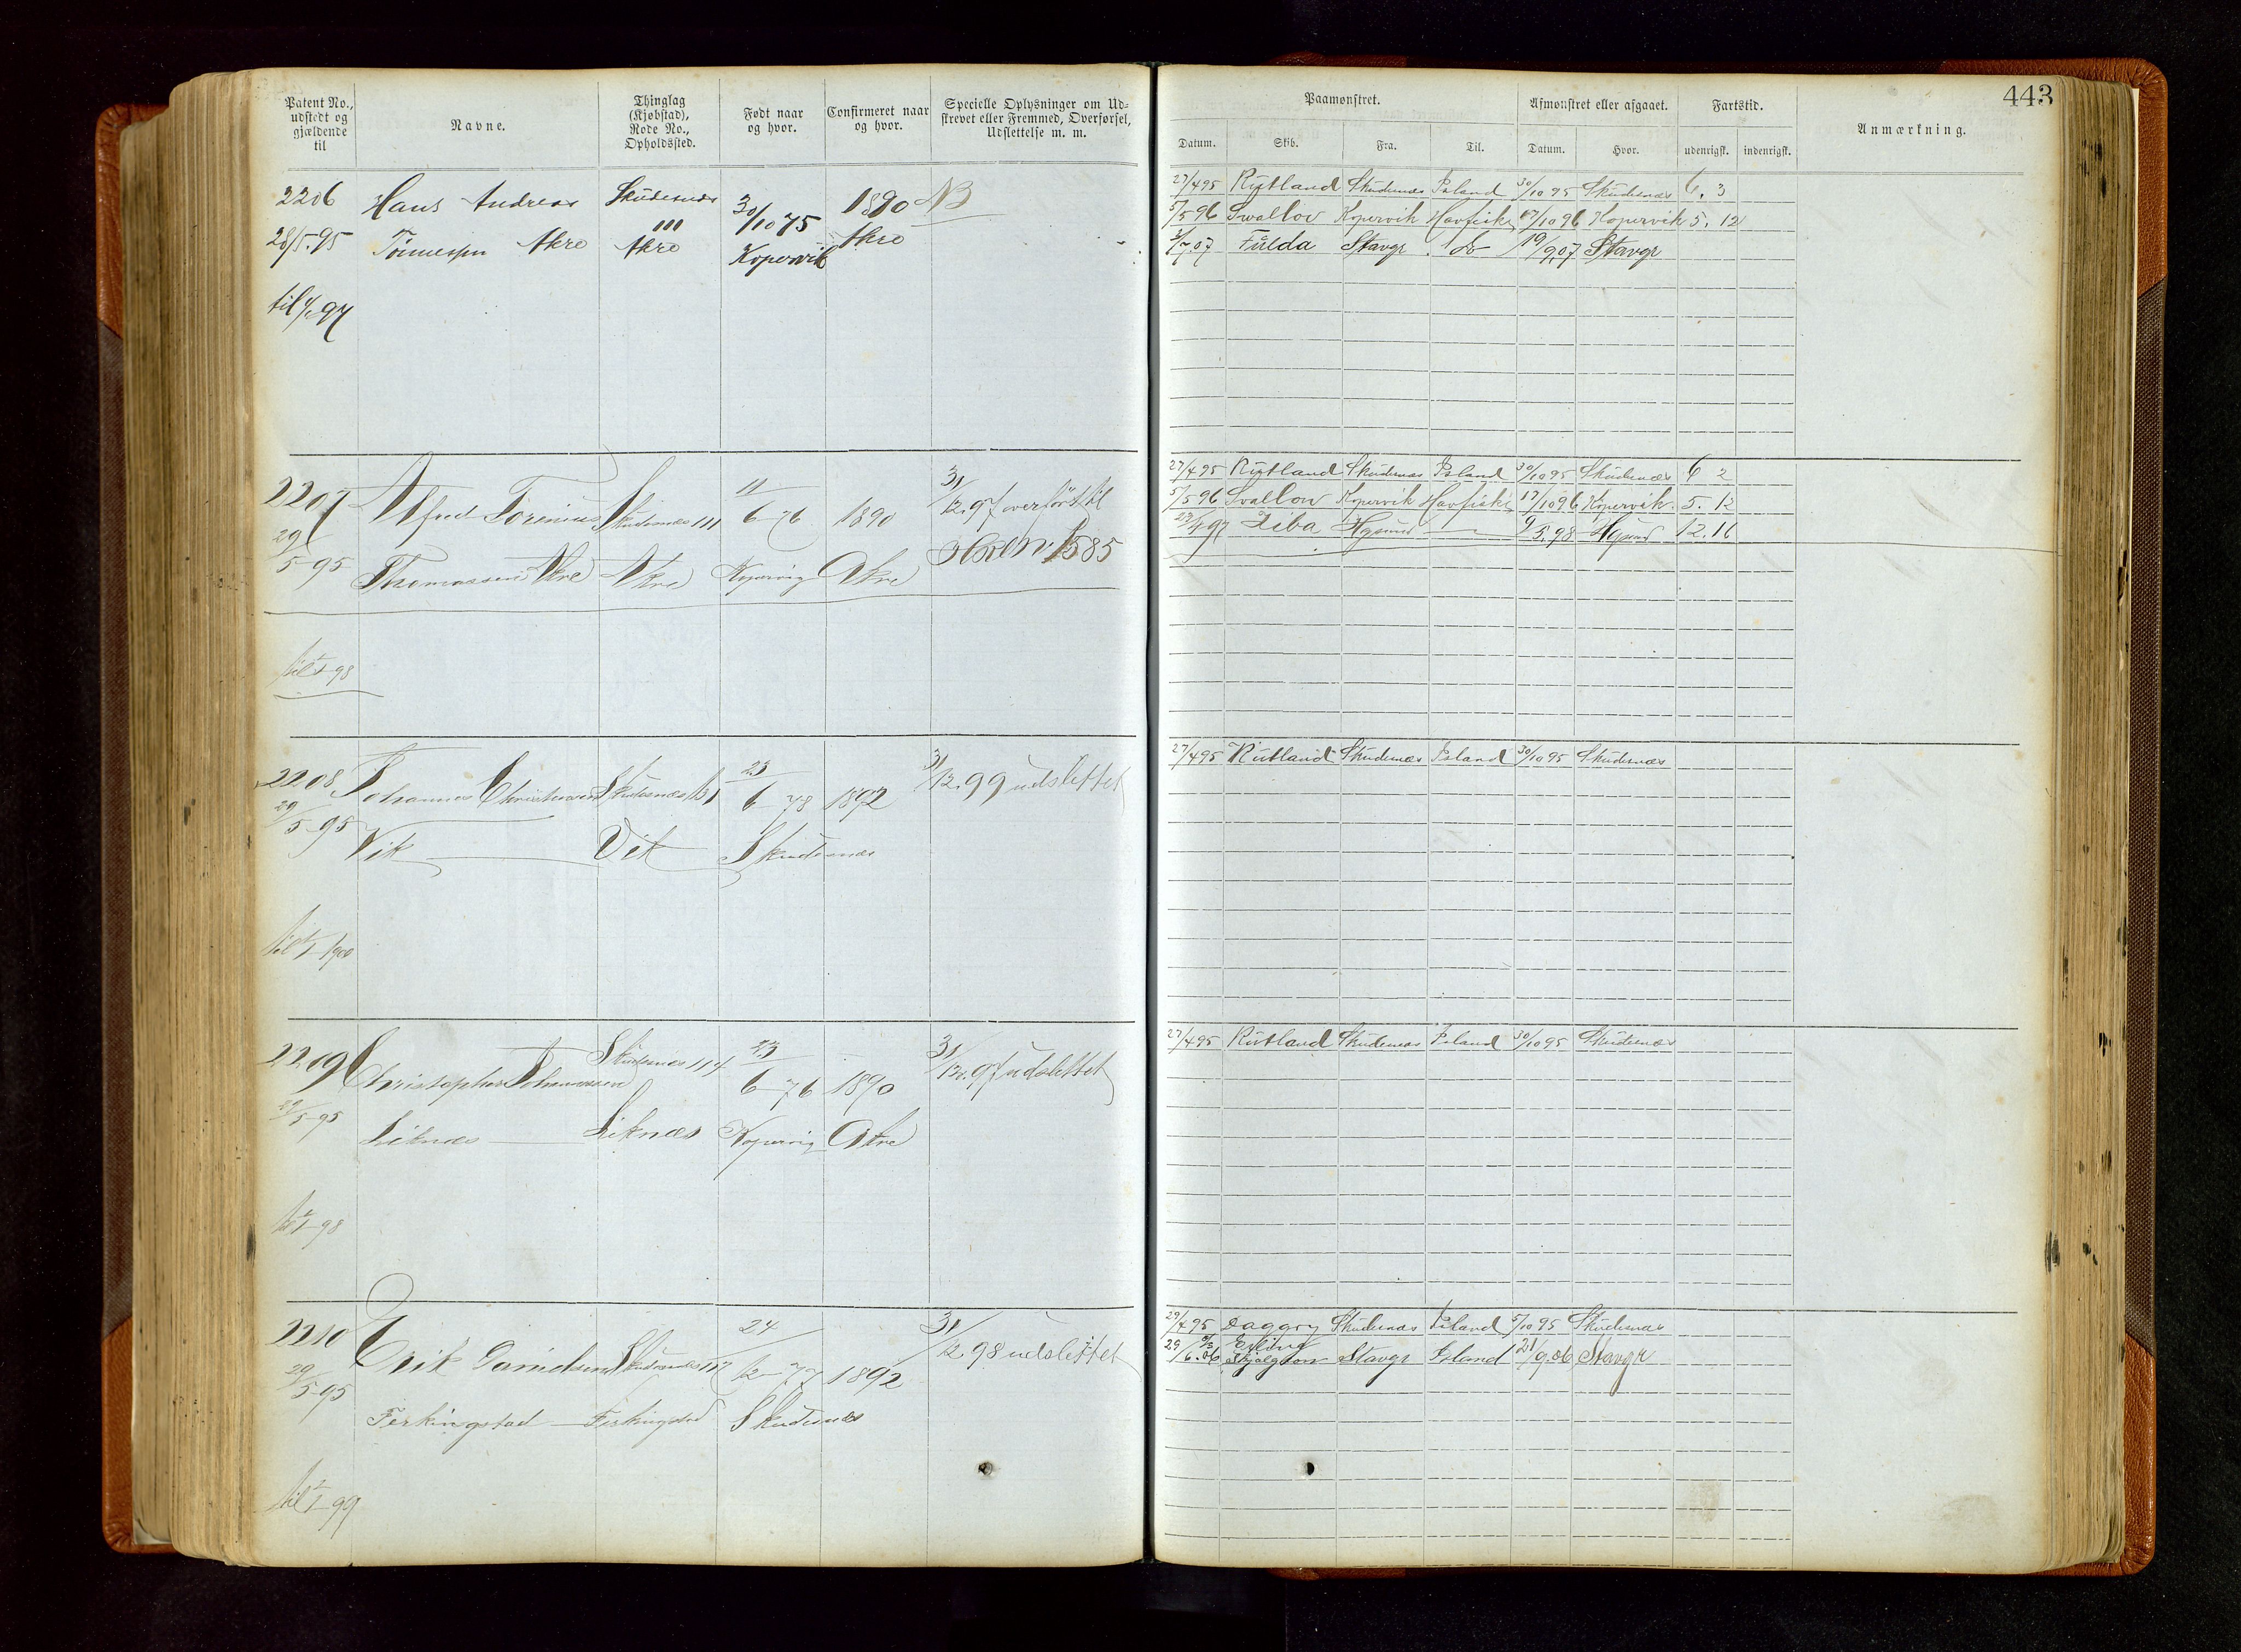 Patent No., udstedt og gjældende til
Navne.
Thinglag (Kjøbstad), Rode No., Opholdssted.
Født naar og hvor.
Confirmeret naar og hvor.
Specielle Oplysninger om Udskrevet eller Fremmed, Overførsel, Udslettelse m. m.
2206 Hans Andreas Skudesnæs 30/10 75 1890 NB
28/5-95 Tønnessen Akre 111 Akre Kopervik Akre
til 1/1 97
2207 Alfred Skudesnæs 111 11/6-76 1890 31/12.97 overført til
29/5-95 Thomassen Akre Akre Kopervig Akre Hovedr. 1585
til 1/1-98
2208 Johannes Christensen Skudesnæs 131 23/6 78 1892 31/12.99 udslettet
29/5-95 Vik Vik Skudesnæs
til 1/1-1900
2209 Christopher Johannessen Skudesnæs 114 23/6-76 1890 31/12.97 udslettet
29/5-95 Liknæs Liknæs Kopervig Akre
til 1/1-98
2210 Erik Danielsen Skudesnæs 117 24/12-77 1892 31/12.98 udslettet
29/5-95 Ferkingstad Ferkingstad Skudesnæs
til 1/1-99
443
Paamønstret.
Afmønstret eller afgaaet.
Fartstid.
Anmærkning.
Datum. Skib. Fra. Til. Datum. Hvor. udenrigsk. indenrigsk.
27/4 95 Rutland Skudenæs Island 30/10 95 Skudesnæs 6. 3
5/5 96 Swallow Kopervik Havfiske 17/10 96 Kopervik 5. 12
07 Fulda Stavgr do 19/9.07 Stavgr
27/4 95 Rutland Skudenæs Island 30/10 95 Skudenæs 6 2
5/5 96 Svallow Kopervik Havfiske 17/10 96 Kopervik. 5. 12
97 Ziba Hgsund 9/5.98 Hgsund 12.16
27/4 95 Rutland Skudenæs Island 30/10 95 Skudesnæs
27/4 95 Rutland Skudenæs Island 30/10 95 Skudesnæs
29/4 95 Daggry Skudenæs Island 5/10 95 Skudesnæs
29/6.06 Erling Skjalgson Stavgr Island 21/9.06 Stavgr